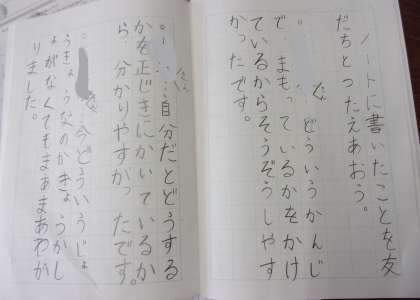 ノートに書いたことを友
だちとつたえあおう。
どういうかんじ
で、まもっているかをかけ
ているからそうぞうしやす
かったです。
さん…自分だとどうする
かを正じきにかいているか
ら、分かりやすかったです。
今どういうじょ
うきょうなのかきょうかし
ょがなくてもまあまあわか
りました。